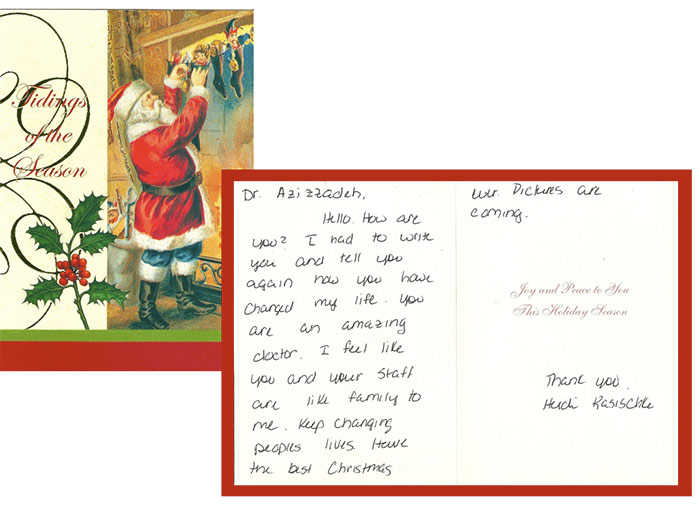 Tidings
of the
Season
Dr. Azizzadeh,
Hello. How are
you? I had to write
you and tell you
again how you have
changed my life. You
are an amazing
doctor. I feel like
you and your staff
are like family to
me. Keep changing
peoples lives. Have
the best Christmas
ever. Pictures are
coming.
Joy and Peace to You
This Holiday Season
Thank you.
Heidi Kasischke